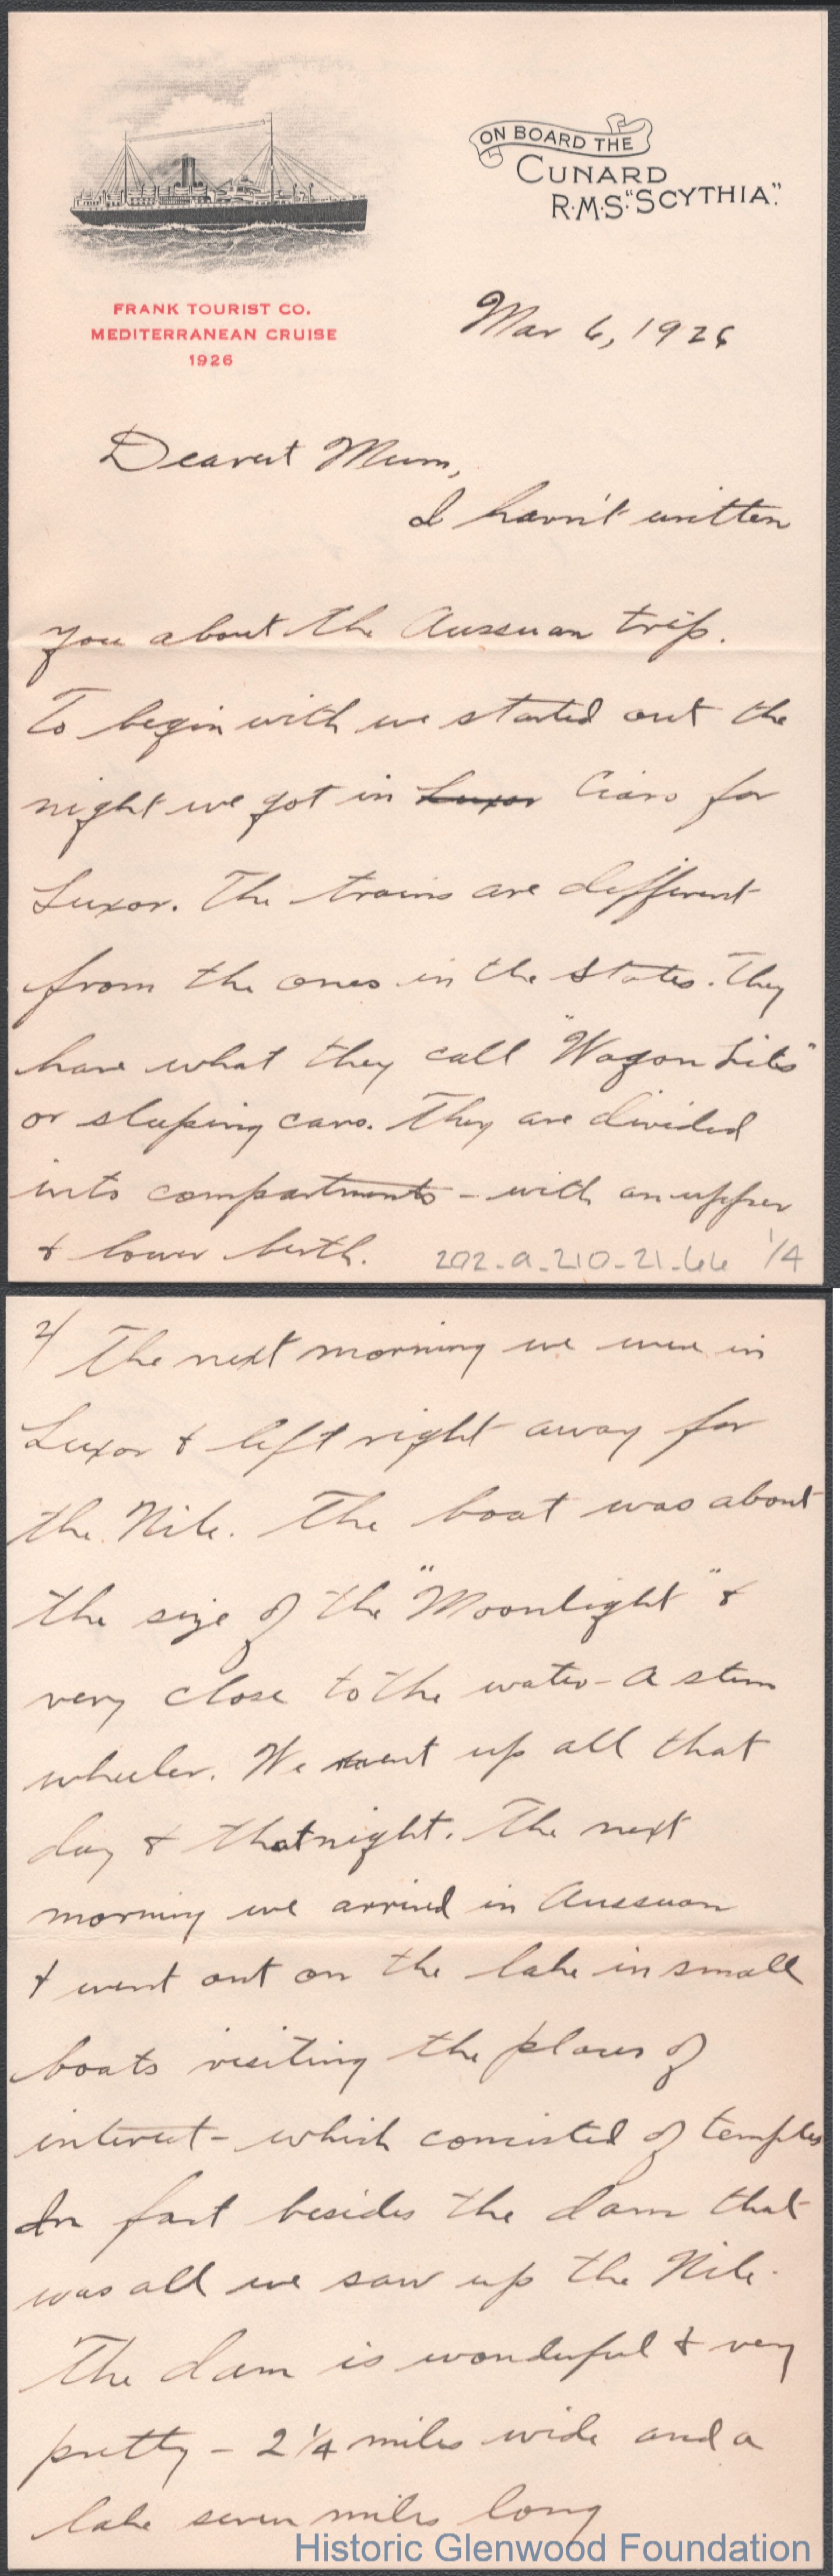 ON BOARD THE
CUNARD
R·M·S·"SCYTHIA".
FRANK TOURIST CO.
MEDITERRANEAN CRUISE
1926
Mar 6, 1926
Dearest Mum,
I havn't written
you about the Aussuan trip.
To begin with we started out the
night we got in Luxor Ciaro for
Luxor. The trains are different
from the ones in the States. They
have what they call "Wagon Lits"
or sleeping cars. They are divided
into compartments - with an upper
& lower berth.
202-a-210-21-66 1/4
2/ The next morning we were in
Luxor & left right away for
the Nile. The boat was about
the size of the "Moonlight" &
very close to the water - a stern
wheeler. We went up all that
day & that night. The next
morning we arrived in Aussuan
& went out on the lake in small
boats visiting the places of
interest - which consisted of temples
In fact besides the dam that
was all we saw up the Nile.
The dam is wonderful & very
pretty - 2 1/4 miles wide and a
lake seven miles long
Historic Glenwood Foundation